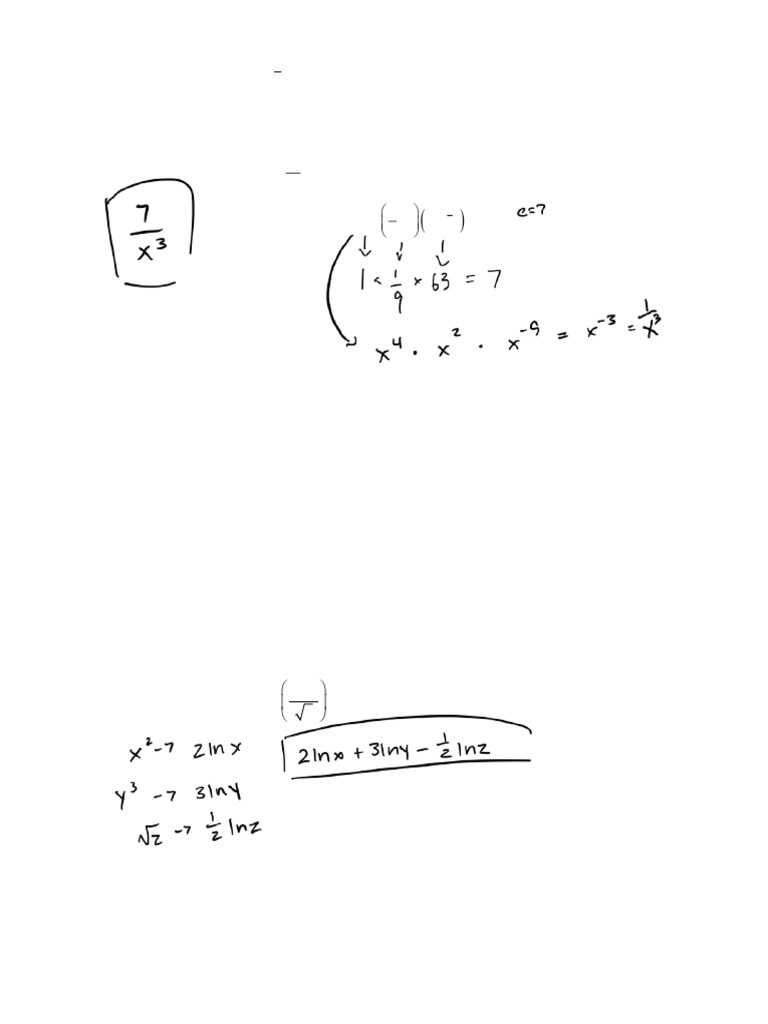 7/x³
(– )( – ) c=7
↓ ↓ ↓
1 × 1/9 × 63 = 7
x⁴ · x² · x⁻⁹ = x⁻³ = 1/x³
(—/√)
x² → 2lnx
2lnx + 3lny – 1/2 lnz
y³ → 3lny
√z → 1/2 lnz